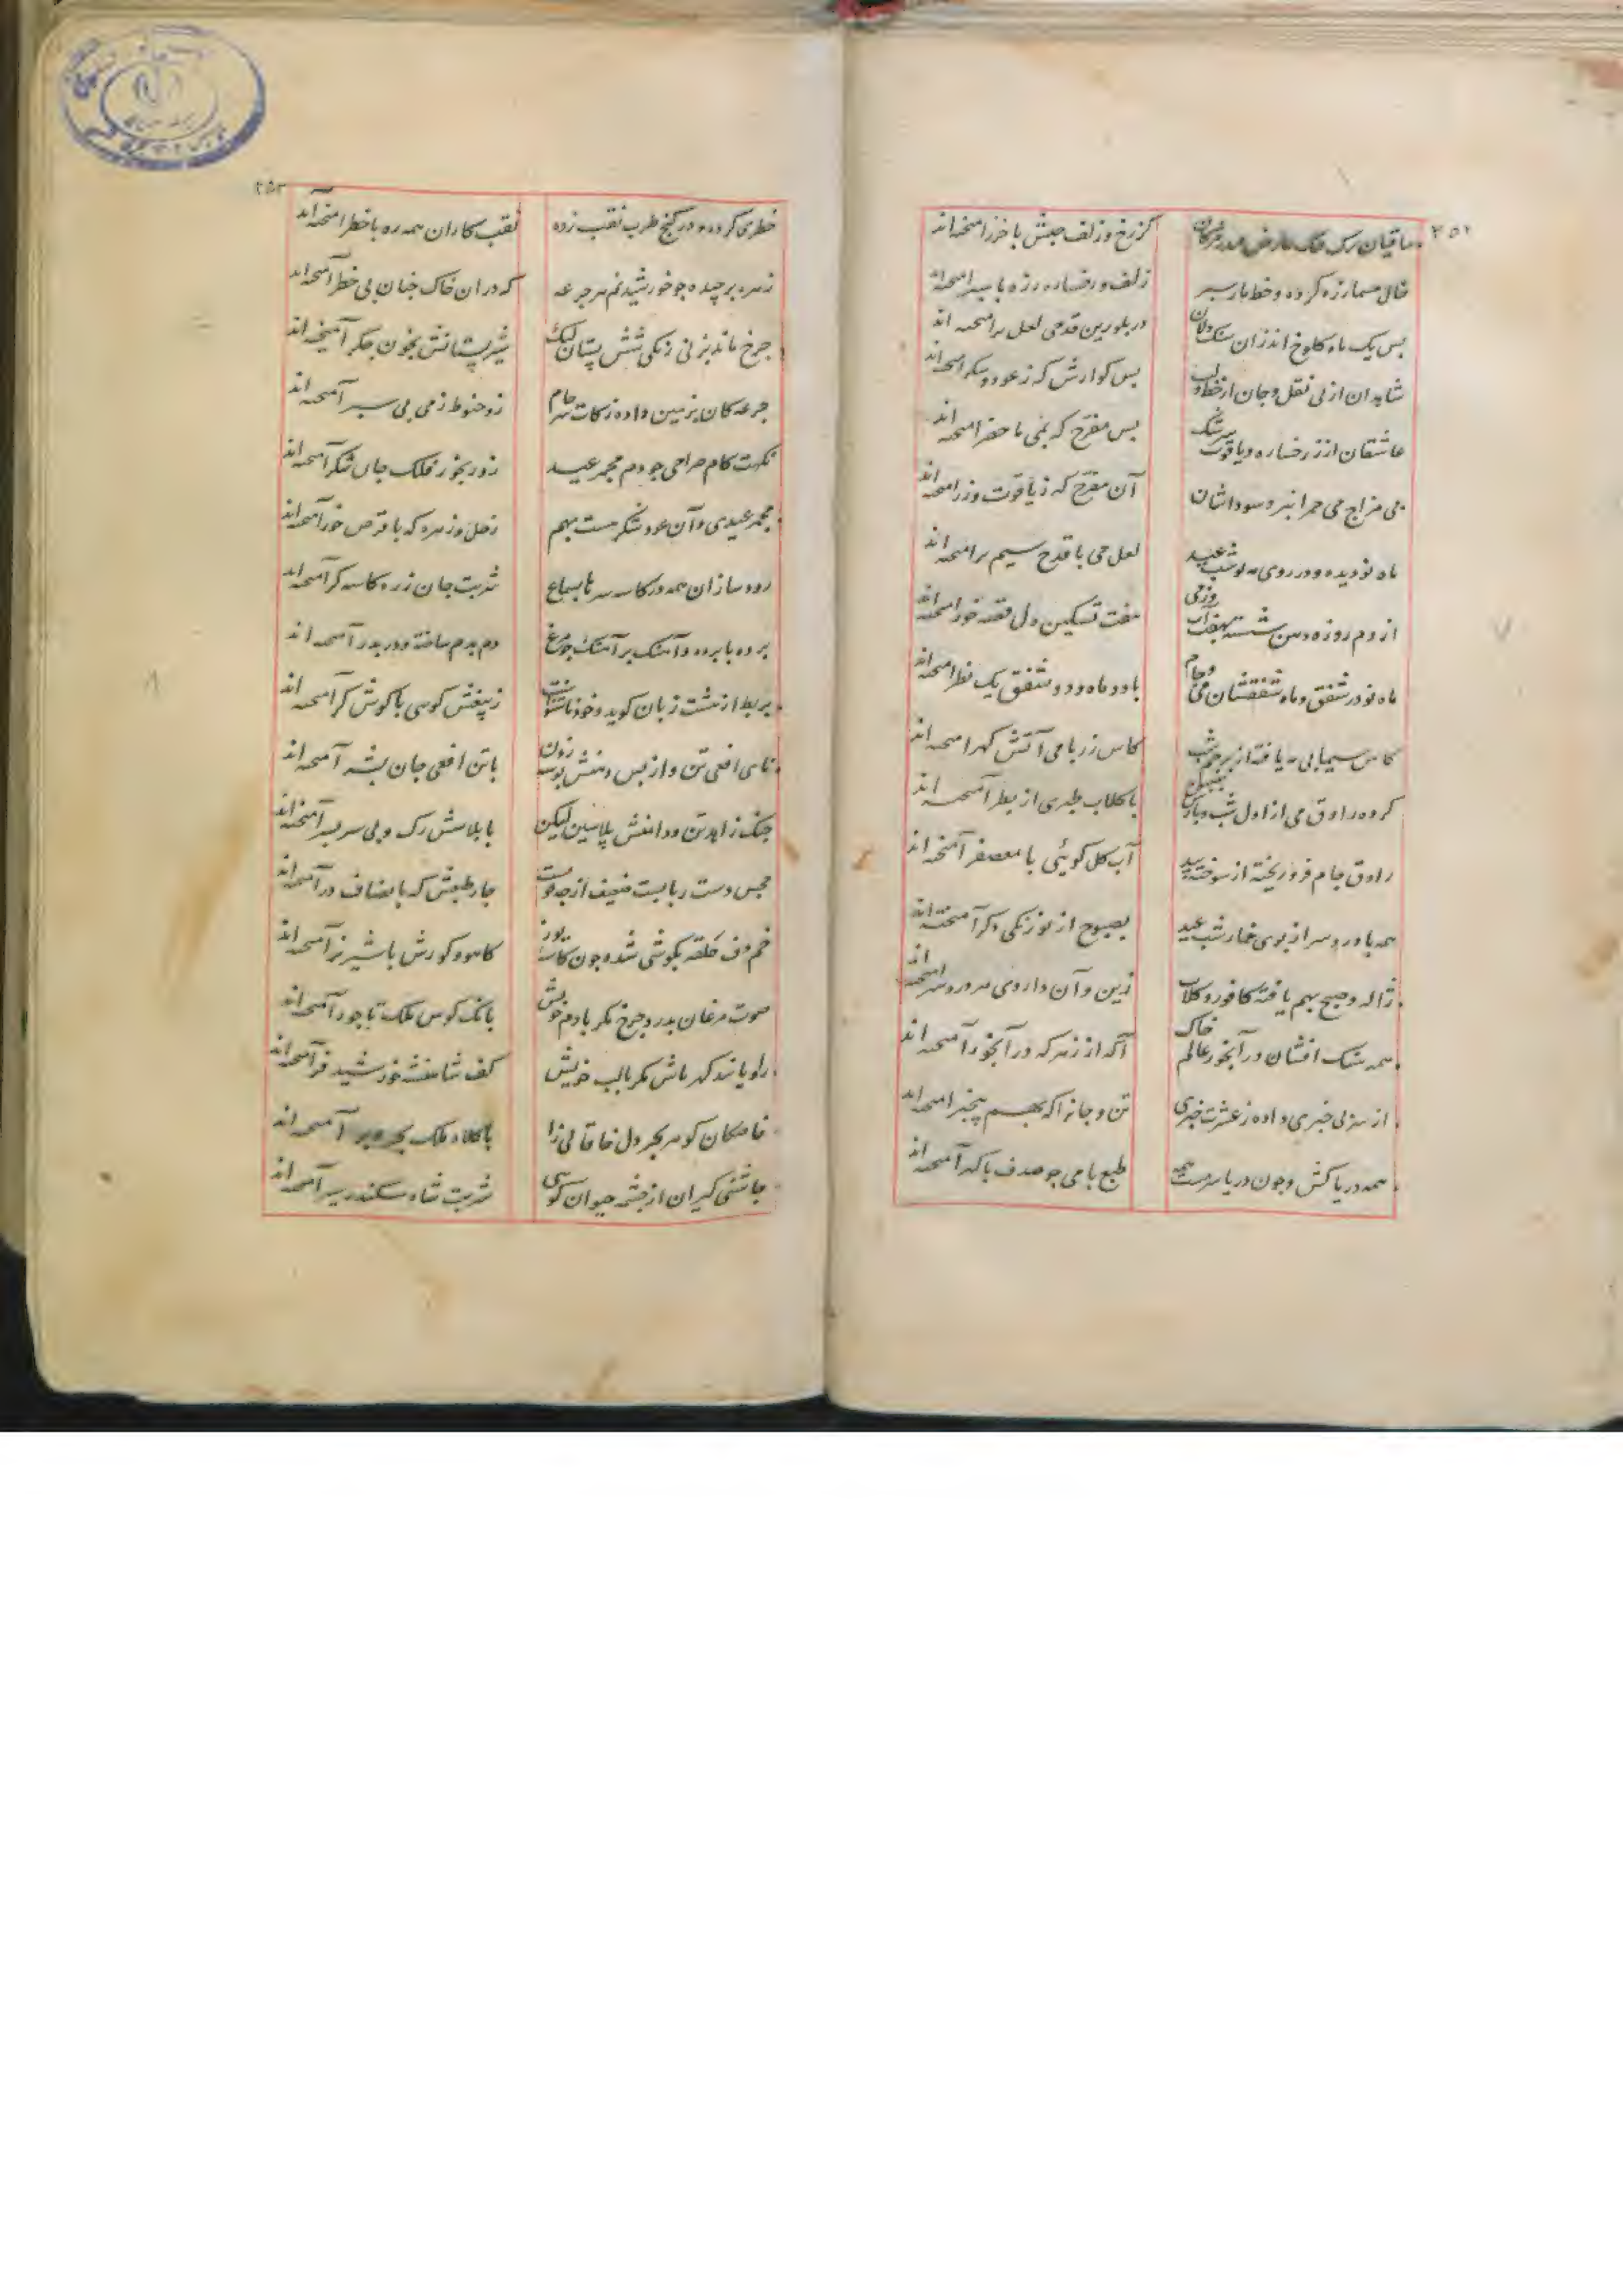 ۲۵۲
ساقیان ترک فنک عارض
کز رخ و زلف حبش با خزر امیخته‌اند
خال
زلف و رخساره زره با سپر امیخته‌اند
پس یک ماه کلوخ اندازان سنک دلان
در بلورین قدحی لعل تر امیخته اند
شاهدان از پی نقل و جان از خط و لب
بس کوارش که ز عود و شکر امیخته‌اند
عاشقان از زر رخساره و یاقوت سرشک
بس مفرح که بمی ما حضر امیخته اند
می مزاج می حمرا نبرد سوداشان
آن مفرح که ز یاقوت و زر امیخته اند
ماه نو دیده و در روی مه نو شب عید
لعل می با قدح سیم بر امیخته اند
از دم روزه دهن شسته بهفت آب وز می
هفت تسکین دل فتنه خور امیخته اند
ماه نو در شفق و ماه شفقشان می و جام
با دو ماه و دو شفق یک نظر امیخته اند
کاس سیمابی
کاس زر با می آتش کهر امیخته اند
کرده راوق می از اول شب و باز بصبح
با کلاب طبری از بطر آمیخته اند
راوق جام فرو ریخته از سوخته بید
آب کل کوئی با معصفر آمیخته اند
همه با درد سر از بوی خمار شب عید
بصبوح از نو رنکی دکر آمیخته اند
ژاله و صبح بهم یافته کافور و کلاب
زین و آن داروی هر درد سر امیخته اند
همه مشک افشان در آبخور عالم خاک
آکه از زهر که در آبخور آمیخته اند
از سر بی خبری داده ز عشرت خبری
تن و جانرا که بهم بیخبر امیخته اند
همه دریا کش و چون دریا سرمست همه
طبع با می چو صدف با کهر آمیخته اند
۲۵۳
خطری کرده و در کنج طرب نقب زده
نقب کاران همه ره با خطر آمیخته اند
زهره برچیده چو خورشید نم هر جرعه
که در ان خاک چنان بی خطر آمیخته اند
چرخ ماند بزنی زنکی شش پستان لیک
شیر پستانش بخون جکر آمیخته اند
جرعه کان بزمین داده زکات سر جام
زو حنوط زمی پی سپر آمیخته اند
نکهت کام صراحی چو دم مجمر عید
زو بخور فلک جان شکر آمیخته اند
مجمر عیدی و آن عود و شکر هست بهم
زحل و زهره که با قرص خور آمیخته اند
رود سازان همه در کاسه سرها بسماع
شربت جان ز ره کاسه کر آمیخته اند
پرده با پرده و آهنک بر آهنک چو مرغ
دم بدم ساخته و در بدر آمیخته اند
بربط از هشت زبان کوید و خود ناشنواست
زیبقش کوئی با کوش کر آمیخته اند
نای افعی تن و از بس دهنش بوسه زدن
با تن افعی جان بشر آمیخته اند
چنک زاهد تن و دامنش پلاسین لیکن
با پلاسش رک و پی سر بسر آمیخته اند
مجس دست ربابست ضعیف از چه قویست
چار طبعش که بانصاف در آمیخته اند
خم دف حلقه بکوشی شده چون کاسه یوز
کاهو و کورش با شیر نر آمیخته اند
صوت مرغان بدرد چرخ مکر با دم خویش
بانک کوس ملک تاجور آمیخته اند
راویانند کهر پاش مکر با لب خویش
کف شاهنشه خورشید فر آمیخته اند
خاصکان کوهر بحر دل خاقانی را
با کلاه ملک بحر و بر آمیخته اند
چاشنی کیران از چشمه حیوان کوئی
شربت شاه سکندر سیر آمیخته اند